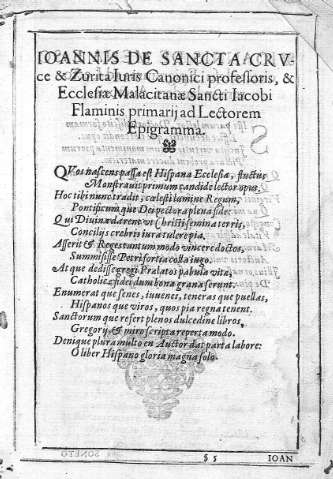 IOANNIS DE SANCTA CRV-
ce & Zurita Iuris Canonici professoris, &
Ecclesiæ Malacitanæ Sancti Iacobi
Flaminis primarij ad Lectorem
Epigramma.
QVos nascens passa est Hispana Ecclesia, fluctus
Monstrauit primum candide lector opus.
Hoc tibi nunc tradit, cælesti lumine Regum,
Pontificumque Dei pectora plena fide:
Qui Diuina darent vt Christi semina terris,
Concilijs crebris iura tulere pia.
Asserit & Reges tantum modo vincere doctos,
Summisisse Petri fortia colla iugo.
Atque dedisse gregi Prælatos pabula vitæ,
Catholicæ fidei dum bona grana serunt.
Enumerat que senes, iuuenes, teneras que puellas,
Hispanos que viros, quos pia regna tenent.
Sanctorum que refert plenos dulcedine libros,
Gregorij & miro scripta reperta modo.
Denique plura multo en Auctor dat parta labore:
O liber Hispano gloria magna solo.
§ 5 IOAN